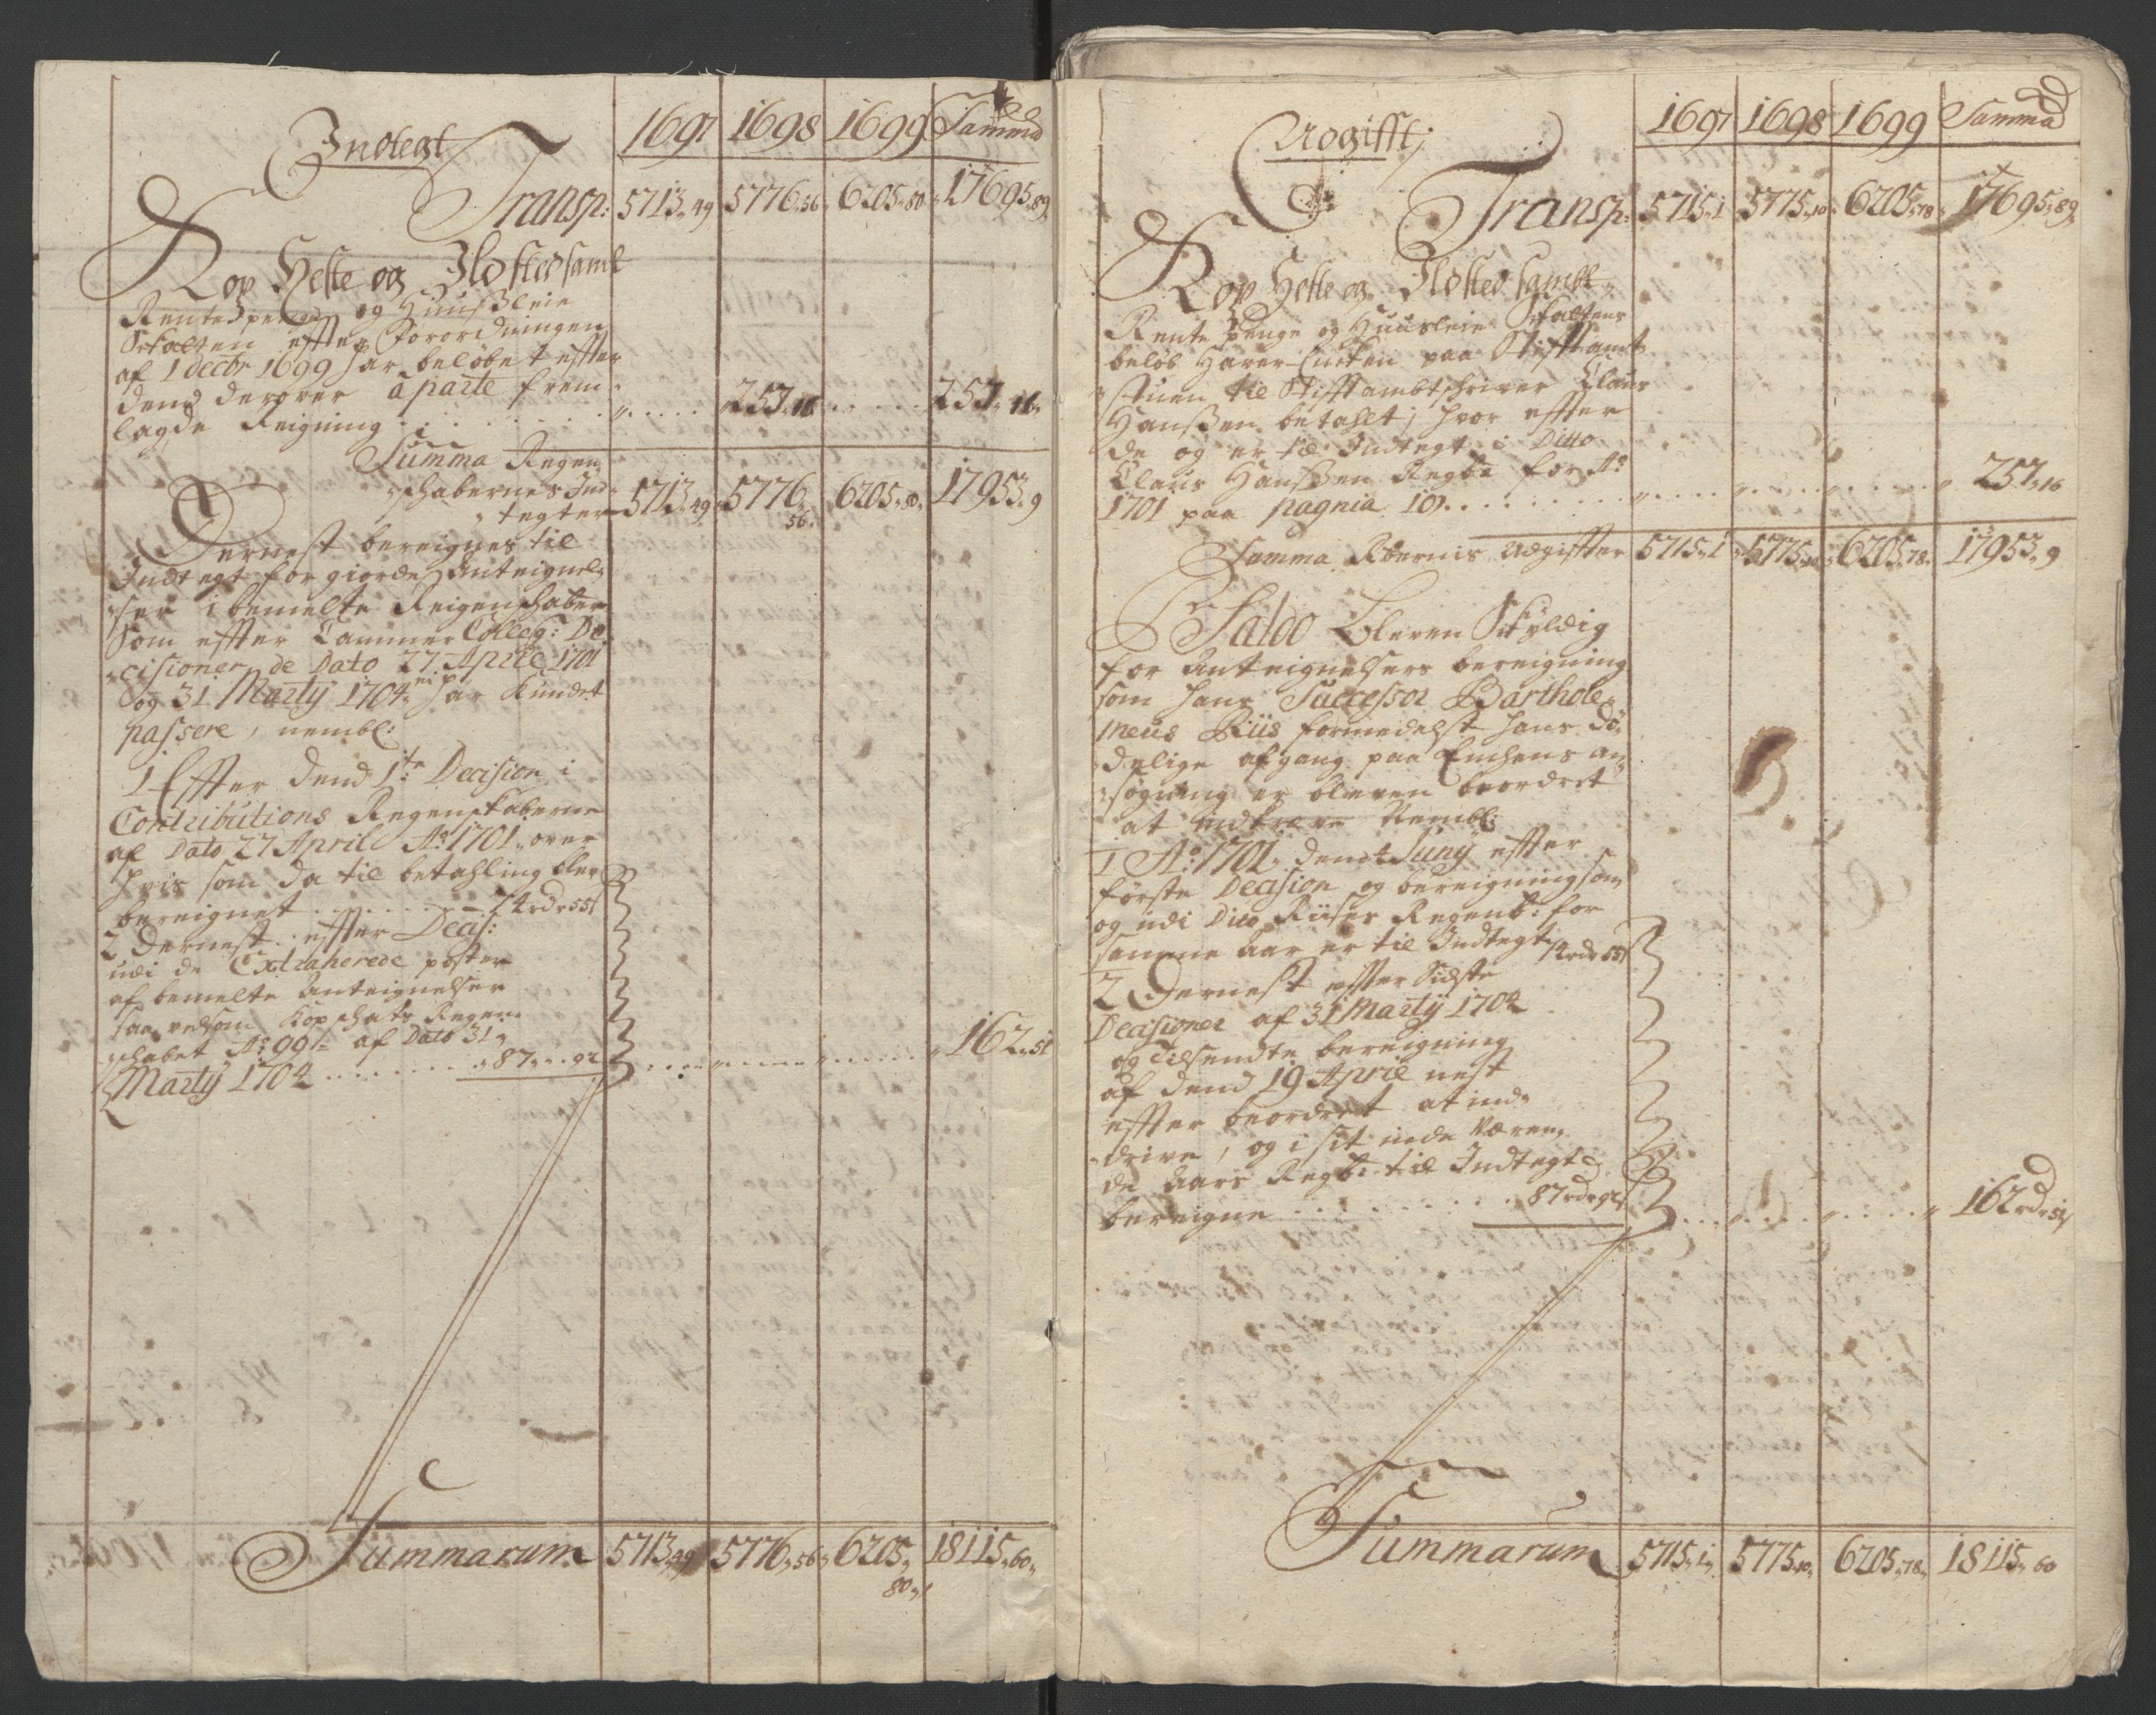 Indtegt
1697 1698 1699 Summa
Transp: 5713„49 5776„56„ 6205„80„ 17695„89„
Kop Heste og Ildsted samt
Rentepenge og Huusleie
Skatten effter Forordningen
af 1 decbr 1699 har beløbet effter
dend derover aparte frem„
lagde Reigning . . . 257„16 . . . 257„16„
Summa Regen
„schabernes Ind„
„tegter 5713„49 5776„56„ 6205„80„ 17953„9
Dernest bereignes til
Indtegt for giorde Anteignel„
„ser i bemelte Reigenschaber
Som effter Cammer Colleg: De„
„cisioner de Dato 27. Aprile 1701
og 31 Martij 1704 ei har Kundet
passere, nembl:
1 Effter dend 1te Decision i
Contributions Regenskaberne
af Dato 27 April Ao 1701„ over
hvis som da til betahling blev
bereignet . . . 74 rdr 55 s
2 Dernest effter Decis:
udi de Extraherede poster
af bemelte Anteignelser
saa velsom Kopschats Regen„
„schabet Ao 99 af Dato 31„
Martij 1704 . . . „87„ . . 92 . . . 162„51
Summarum 5713„49 5776„56„ 6205„80„ 18115„60„
Udgifft
1697 1698 1699 Summa
Transp: 5715„1 5775„10„ 6205„78„ 17695„89„
Kop Heste og Ildsted sambt
Rente Penge og Huusleie Skattens
beløb Haver Encken paa Stifftambt
„stuen til Stifftambtschriver Claus
Hanssen betahlt, hvor effter
de og er til Indtegt i Ditto
Claus Hanssen Regsb for Ao
1701 paa pagnia 10 . . . 257„16
Summa Rbernis Udgiffter 5715„1 5775„10„ 6205„78„ 17953„9
Saldo bleven Skyldig
for Anteignelsers bereigning
som hans Successor Bartholo„
meus Riis formedelst hans Dø„
„delige afgang paa Enchens an„
„søgning er bleven beordret
at indkræve Nembl:
1 Ao 1701„ dend Junij effter
første Decision og bereigning som
og udi Dito Riises Regensb: for
samme aar er til Indtegt 74 rdr 55 s
2 Dernest effter Sidste
Decisioner af 31 Martij 1704
og tilsendte bereigning
af dend 19 Aprile nest
effter beordret at ind„
„drive, og i sit inde Væren„
de Aars Regsb: til Indtegt
bereigne . . . 87 rdr 92 s . . . 162 rdr 51 s
Summarum 5715„1„ 5775„10„ 6205„78„ 18115„60